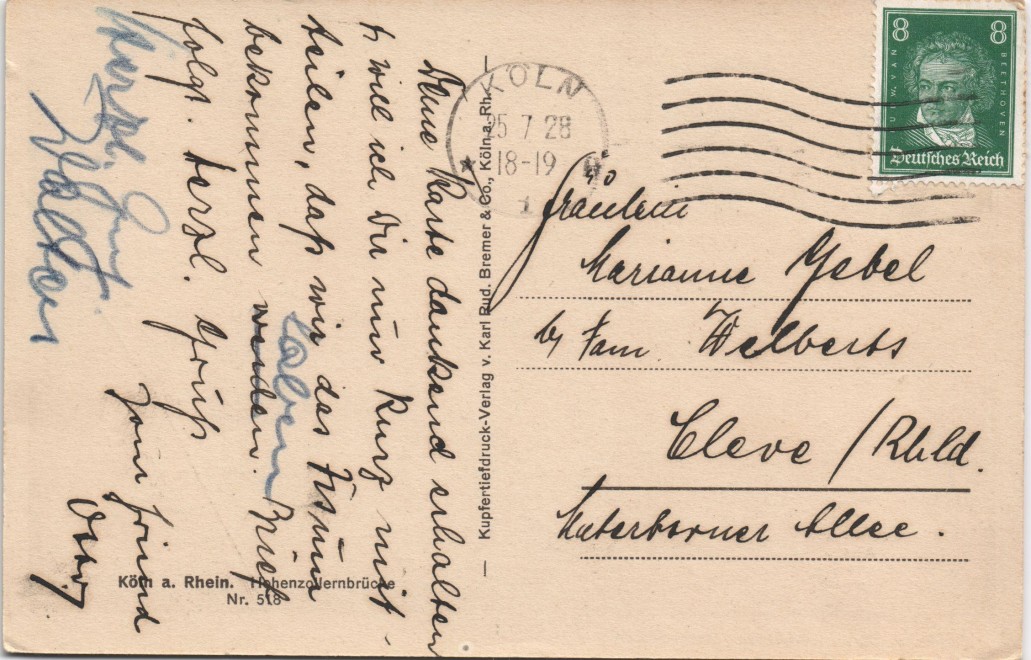 Deine Karte dankend erhalten
will ich Dir nur kurz mit-
teilen, daß wir das
bekommen werden. Brief
haben
folgt. Herzl. Gruß
Dein Freund
Herzl. Gruß
Walter
Kupfertiefdruck-Verlag v. Karl Rud. Bremer & Co., Köln a. Rh.
Köln a. Rhein. Hohenzollernbrücke
Nr. 518
KÖLN
25 7 28
18-19
1
8 8
LUDW. VAN BEETHOVEN
Deutsches Reich
Fräulein
Marianne Gebel
b/ Fam. Welberts
Cleve / Rhld.
Materborner Allee.